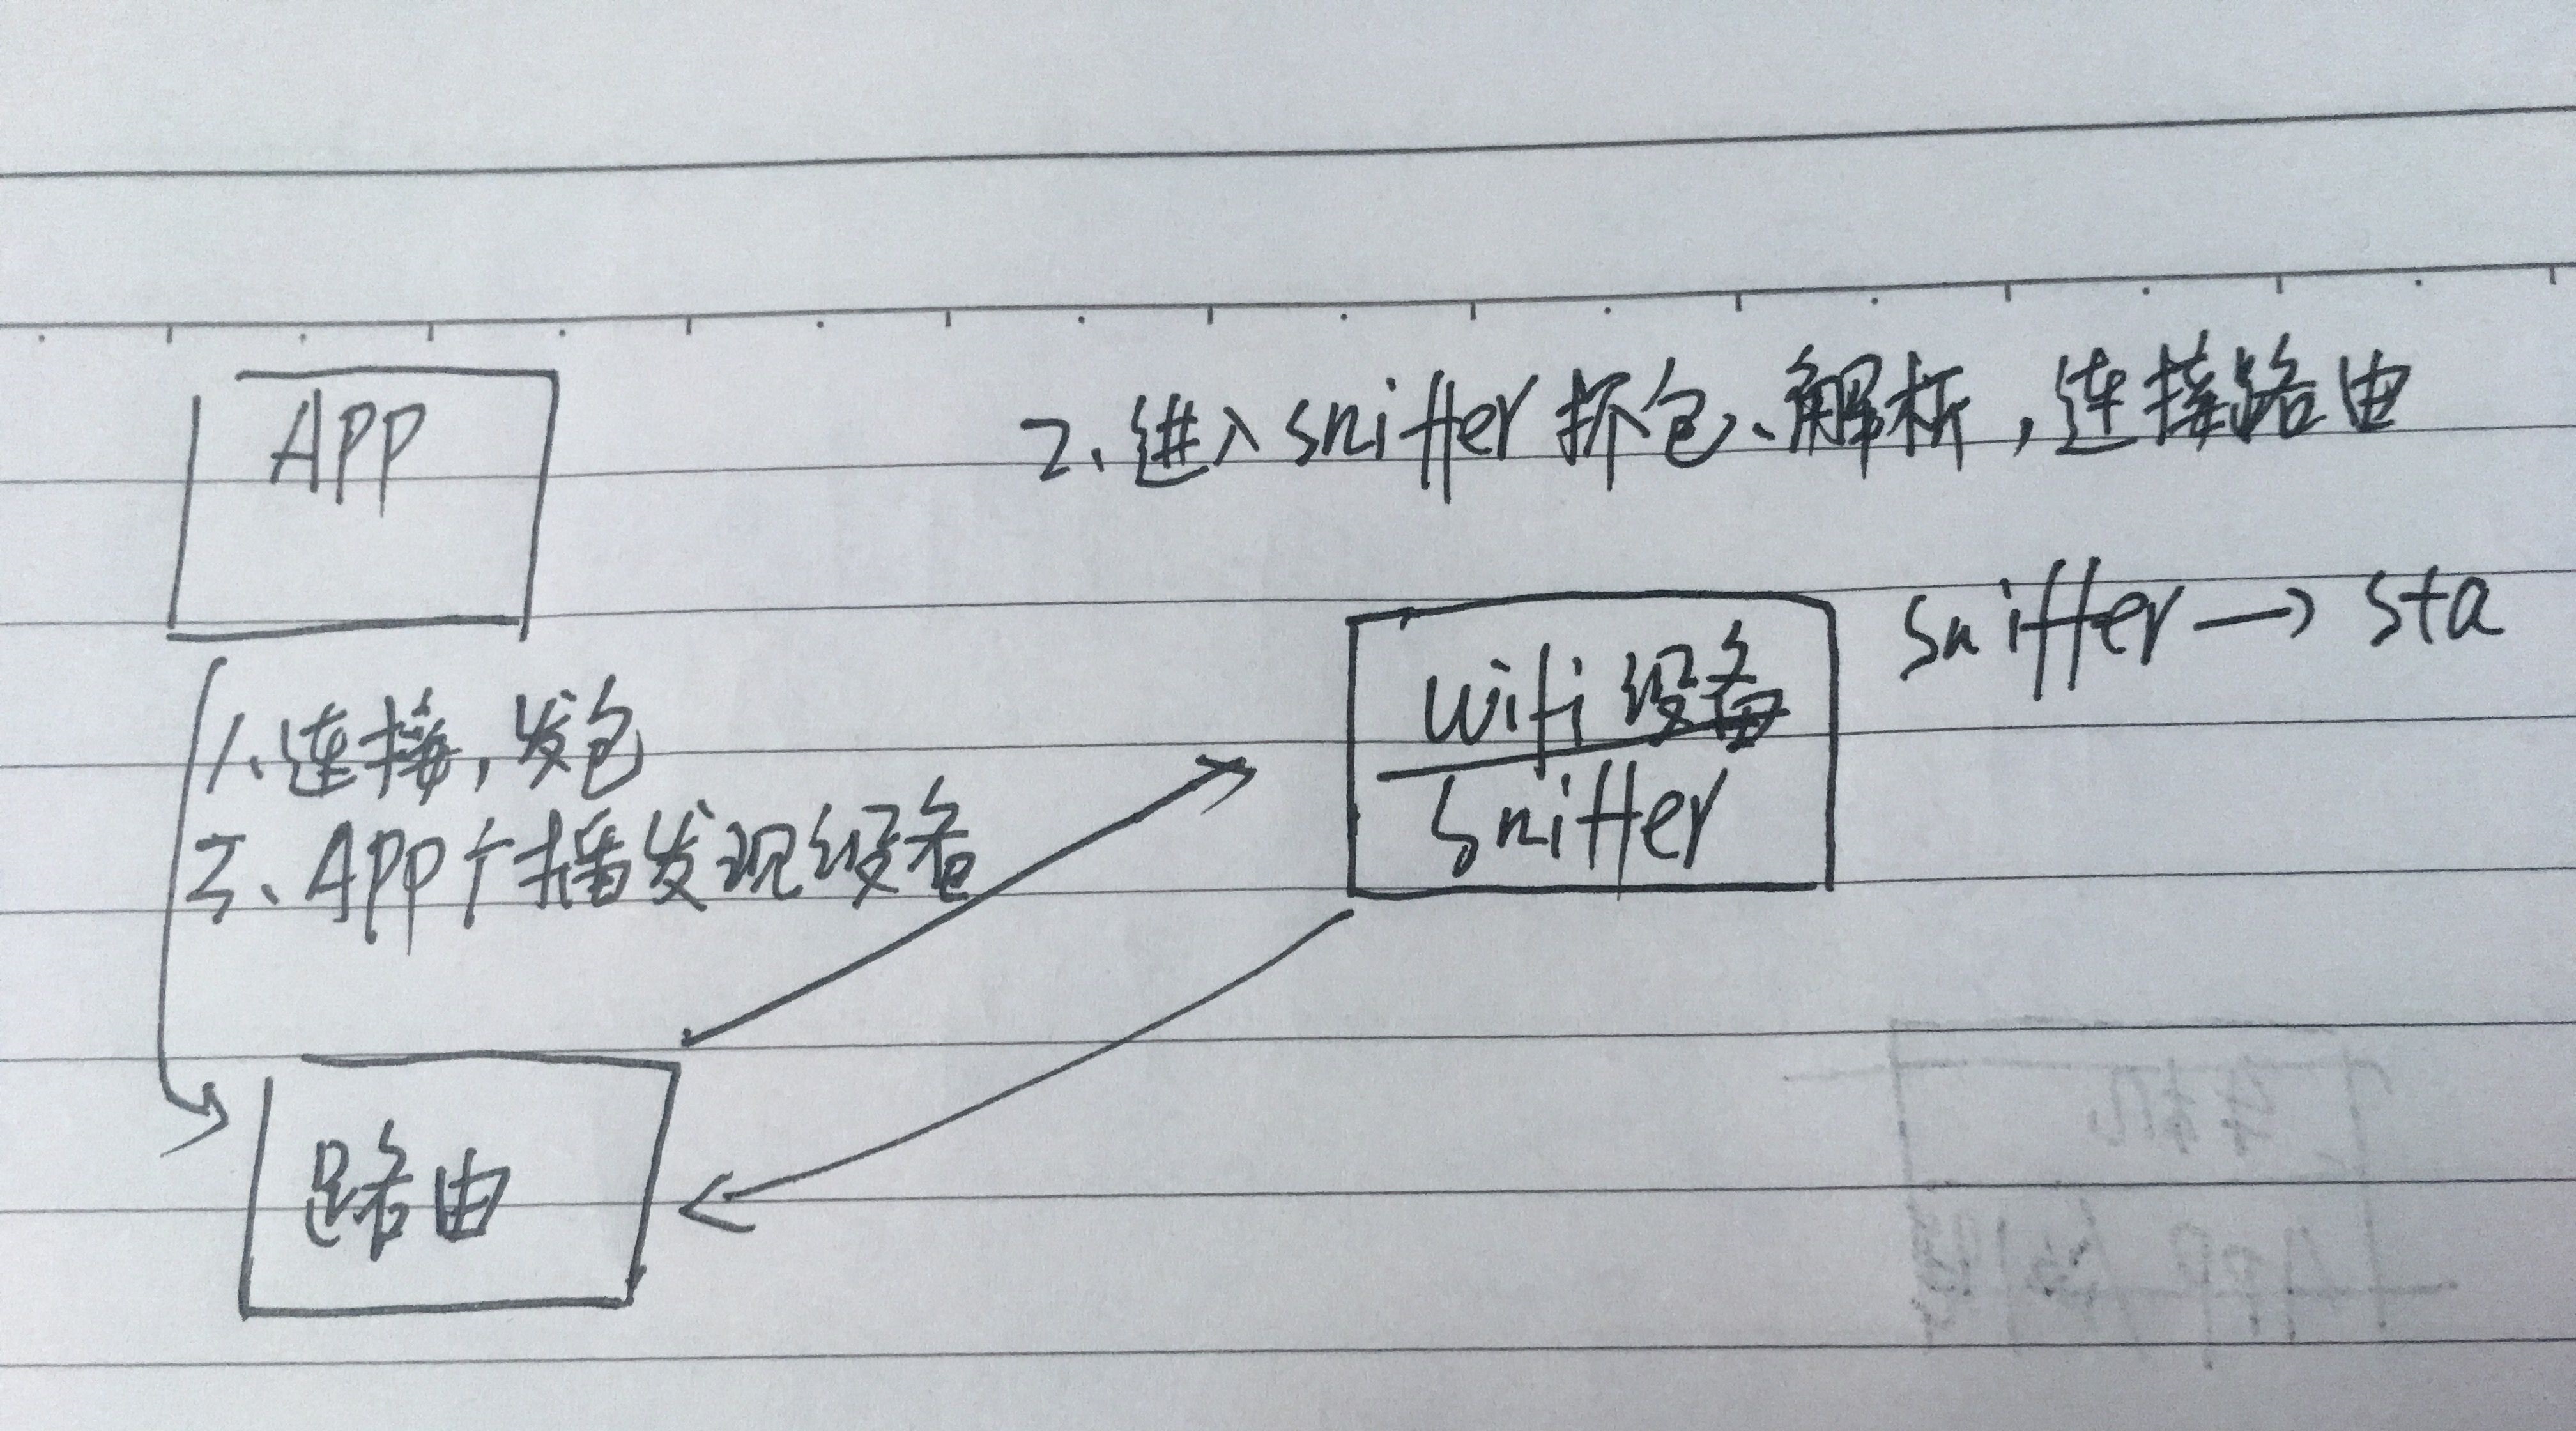 APP
2、进入sniffer抓包、解析，连接路由
sniffer → sta
wifi设备
sniffer
1、连接，发包
3、APP广播发现设备
路由